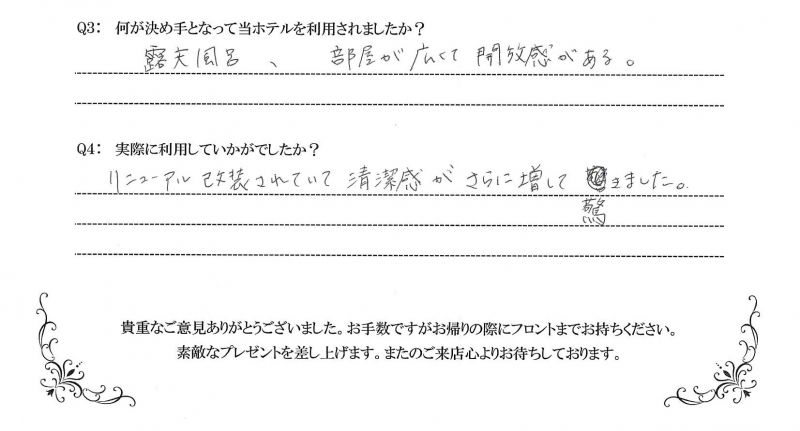 Q3: 何が決め手となって当ホテルを利用されましたか？
露天風呂、 部屋が広くて開放感がある。
Q4: 実際に利用していかがでしたか？
リニューアル改装されていて清潔感がさらに増して きました。
驚
貴重なご意見ありがとうございました。お手数ですがお帰りの際にフロントまでお持ちください。
素敵なプレゼントを差し上げます。またのご来店心よりお待ちしております。